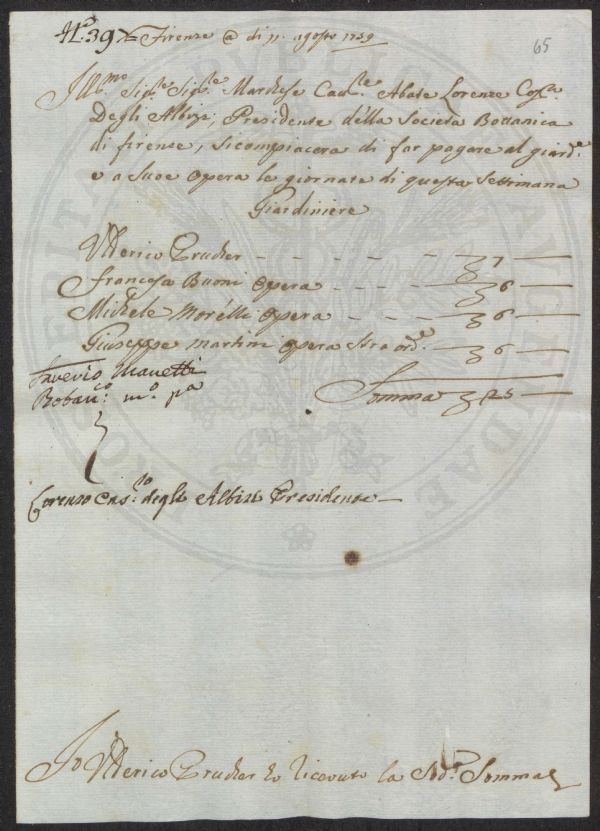 N.° 39 Firenze @ di 11. agosto 1759
65
Ill.mo Sig.re Sig.re Marchese Cav.re Abate Lorenzo Cos.o
Degli Albizi, Presidente della Società Bottanica
di firenze, si compiacera di far pagare al giard.e
e a Suoe opera le giornate di questa Settimana
Giardiniere
Ulderico Prucher - - - - - - 7 —
francesco Buoni opera - - - - 6 —
Michele Morélli opera - - - - 6 —
Giuseppe martini opera Straord.e - 6 —
Saverio Manetti
Botan.co m.o p.a
Somma 25 —
Lorenzo Cas.to degli Albizi Presidente
Io Ulderico Prucher ho riceuuto la Sod.a Somma